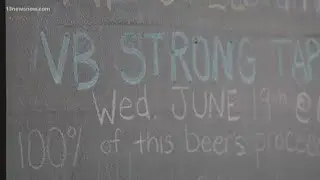 13newsnow.com
VB STRONG TAP
Wed. JUNE 19th @
100% of this beer's procee